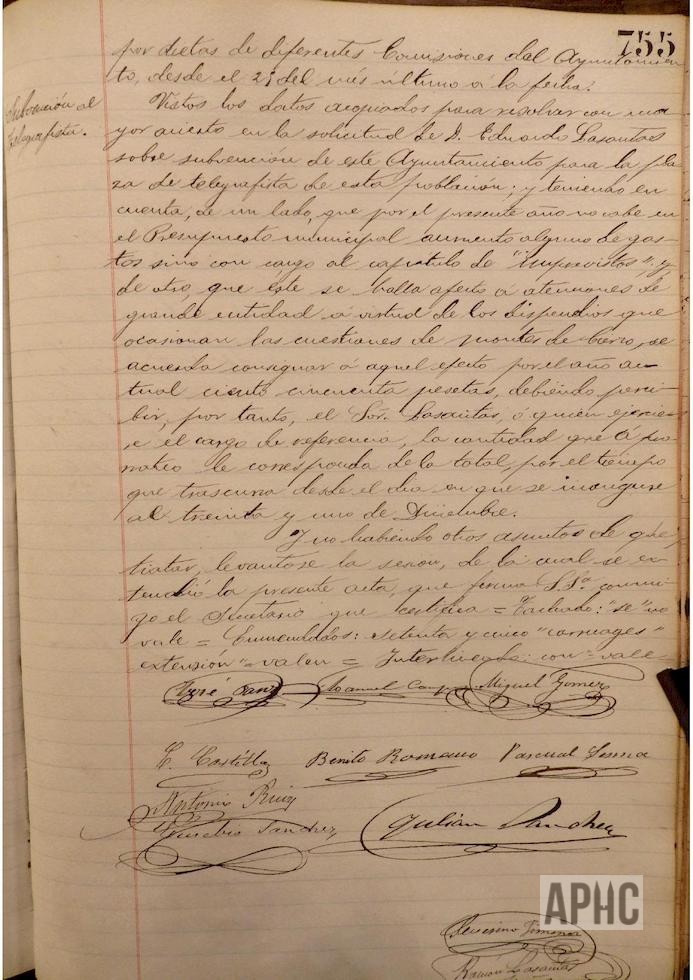 755
por dietas de diferentes Comisiones del Ayuntamien
to, desde el 21 del mes último á la fecha.
Subvención al
telegrafista.
Vistos los datos acopiados para resolver con ma
yor acierto en la solicitud de D. Eduardo Lasantas
sobre subvención de este Ayuntamiento para la pla
za de telegrafista de esta población; y teniendo en
cuenta, de un lado, que por el presente año no cabe en
el Presupuesto municipal aumento alguno de gas-
tos sino con cargo al capítulo de "Imprevistos", y
de otro que este se halla afecto á atenciones de
grande entidad á virtud de los dispendios que
ocasionan las cuestiones de montes de Cierzo, se
acuerda consignar á aquel efecto por el año ac-
tual ciento cincuenta pesetas, debiendo perci
bir, por tanto, el Sor. Lasantas, ó quien ejercie-
se el cargo de referencia, la cantidad que á pro
rrateo le corresponda de la total, por el tiempo
que trascurra desde el dia en que se inaugure
al treinta y uno de Diciembre.
Y no habiendo otros asuntos de que
tratar, levantóse la sesion, de la cual se ex
tendió la presente acta, que firma S.Sª. conmi
go el Secretario que certifica = Tachado: "se" no
vale = Enmendados: setenta y cinco "carruages"
extensión = valen = Interlineado: con = vale
José Sanz Manuel Campos Miguel Gomez
C. Castilla Benito Romano Pascual
Antonio Ruiz
Eusebio Sanchez Julián Sanchez
Severino Jimenez
Ramón Lasantas
APHC